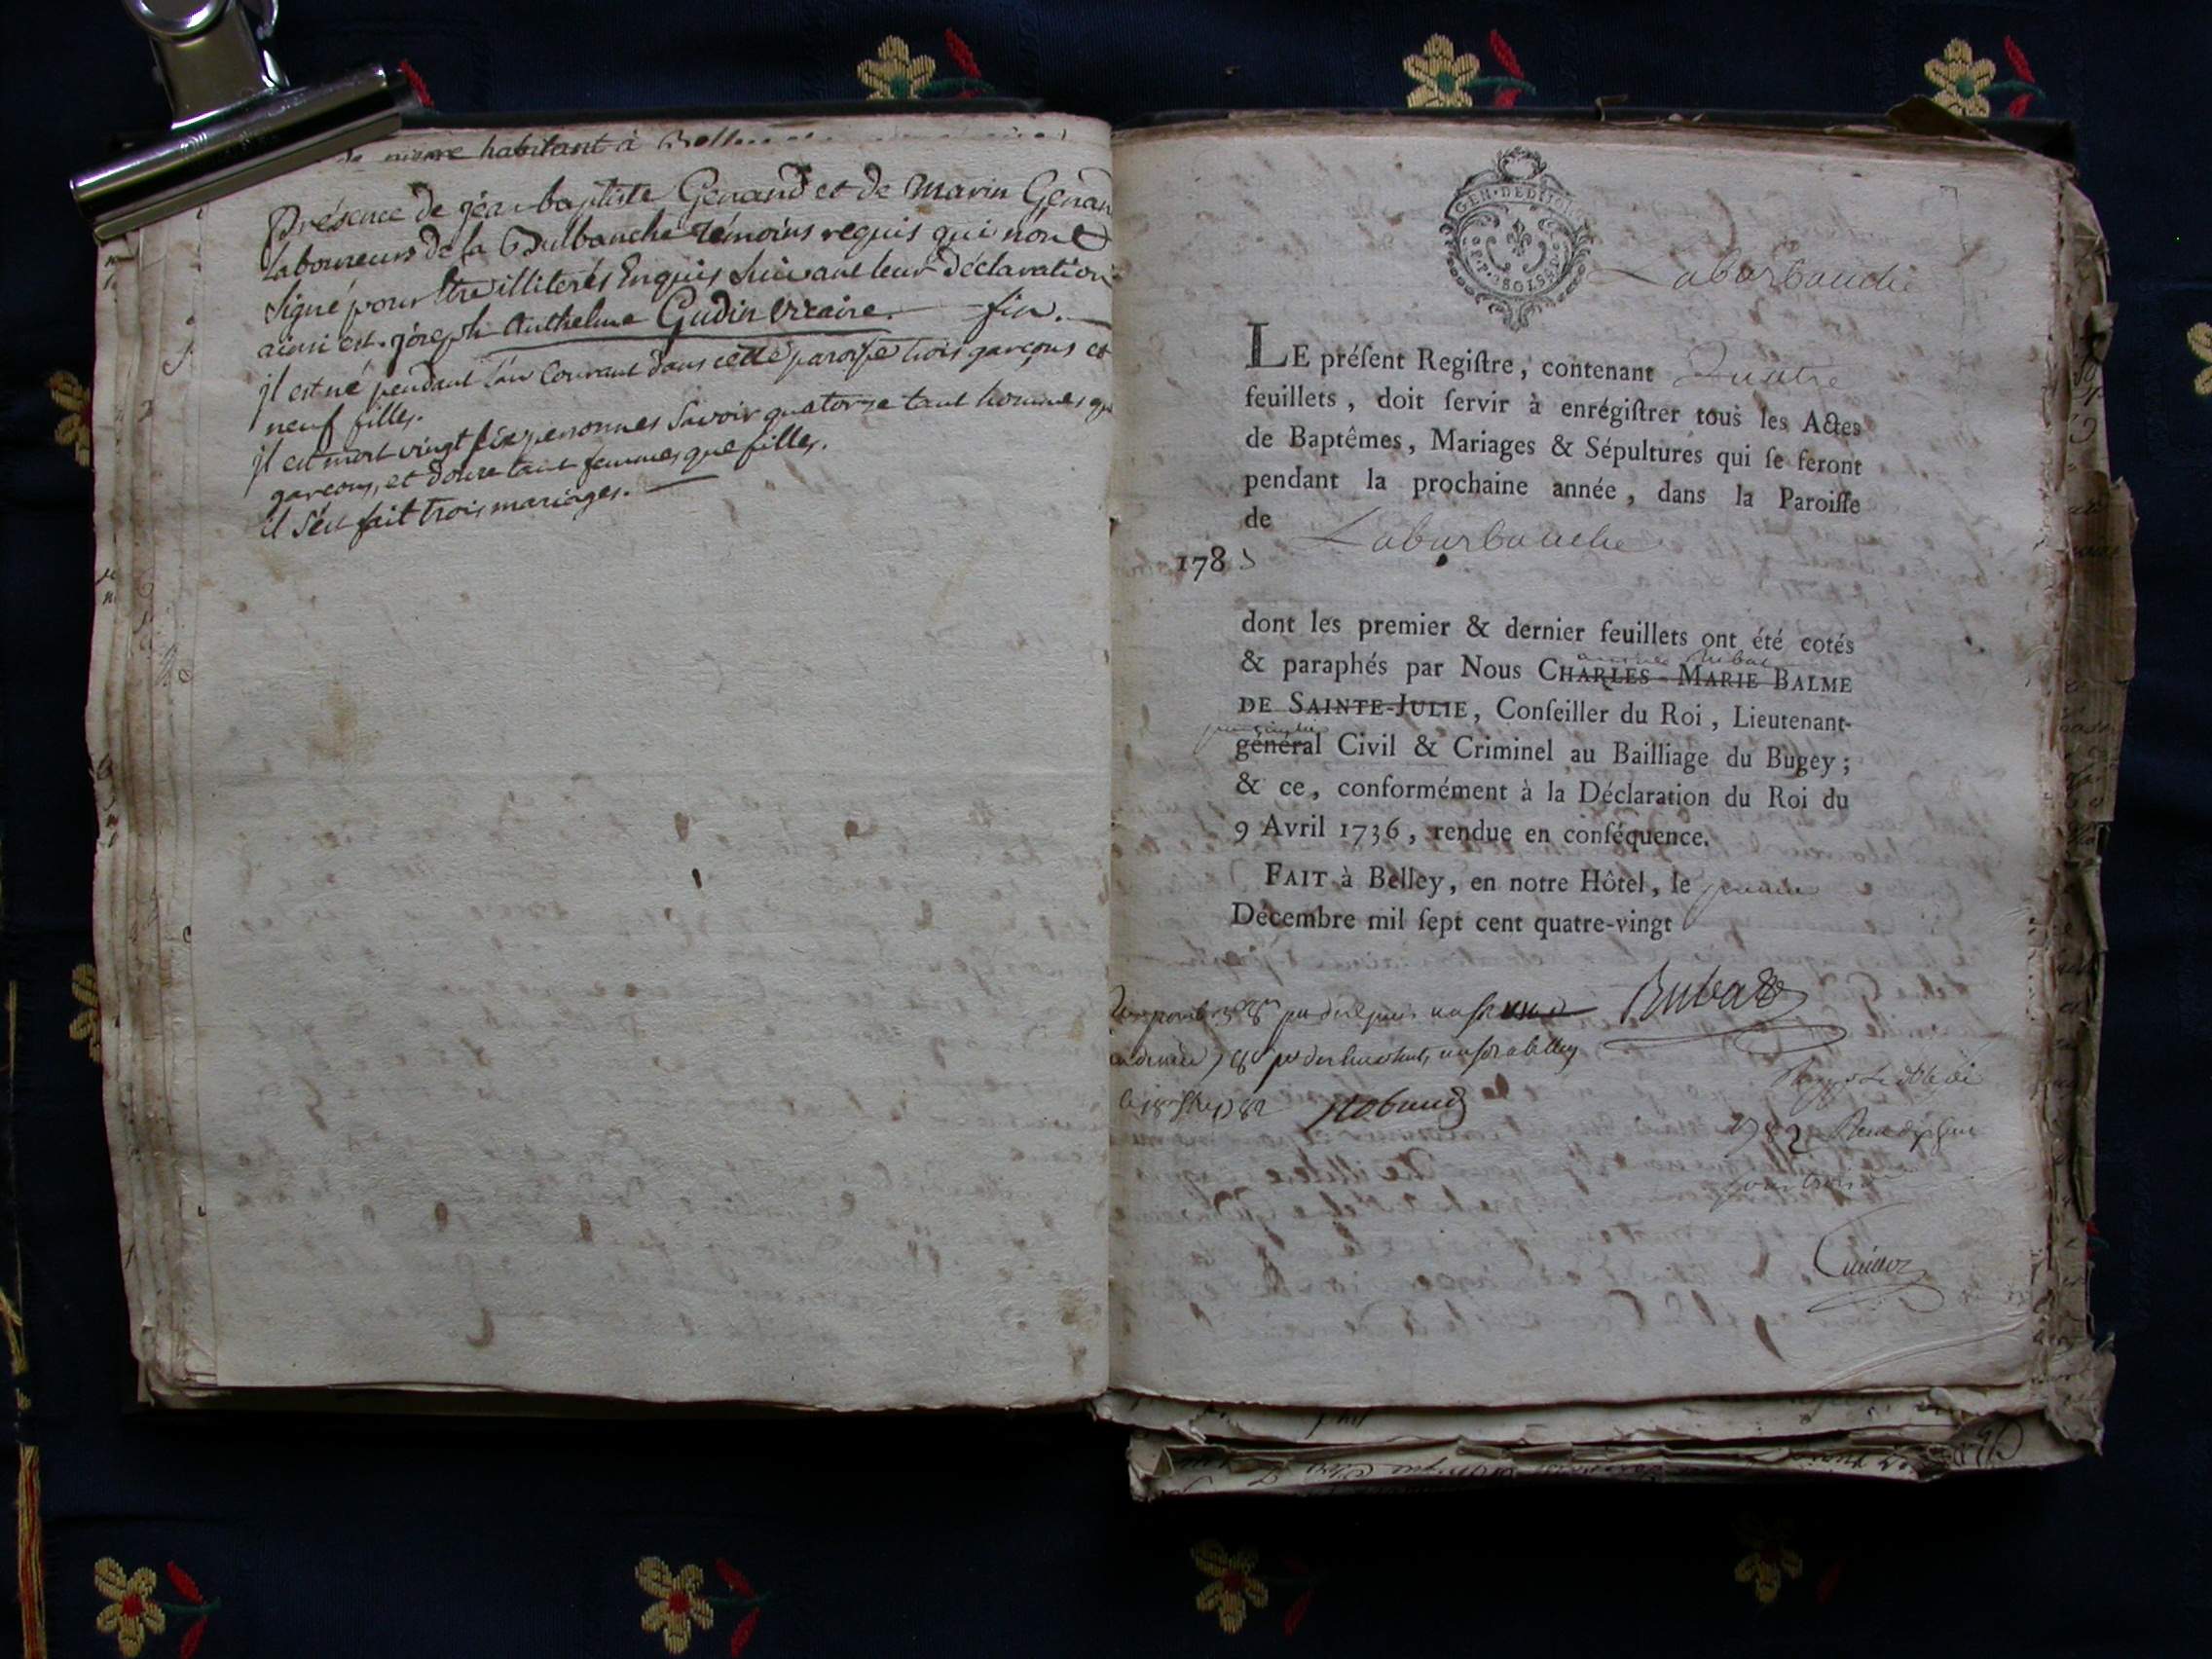 même habitant à
présence de jéan baptiste Genand et de Marin Genan
Laboureurs de la Bulbanche témoins requis qui nont
signé pour être illiterés Enquis suivant leur déclaration
ainsi est. jóseph Anthelme Gudin vicaire. fin.
jl est né pendant l'an Courant dans cette paroisse trois garçons et
neuf filles.
jl est mort vingt six personnes Savoir quatorze tant hommes q
garçons, et douze tant femmes que filles.
il s'én fait trois mariages.
GEN. DEDIJON
Laburbanche
LE préſent Regiſtre, contenant Quatre
feuillets, doit ſervir à enrégiſtrer tous les Actes
de Baptêmes, Mariages & Sépultures qui ſe feront
pendant la prochaine année, dans la Paroiſſe
de Laburbanche
178 3
dont les premier & dernier feuillets ont été cotés
& paraphés par Nous CHARLES-MARIE BALME
DE SAINTE-JULIE, Conſeiller du Roi, Lieutenant-
général Civil & Criminel au Bailliage du Bugey;
& ce, conformément à la Déclaration du Roi du
9 Avril 1736, rendue en conſéquence.
FAIT à Belley, en notre Hôtel, le
Décembre mil ſept cent quatre-vingt
Rubat
1782